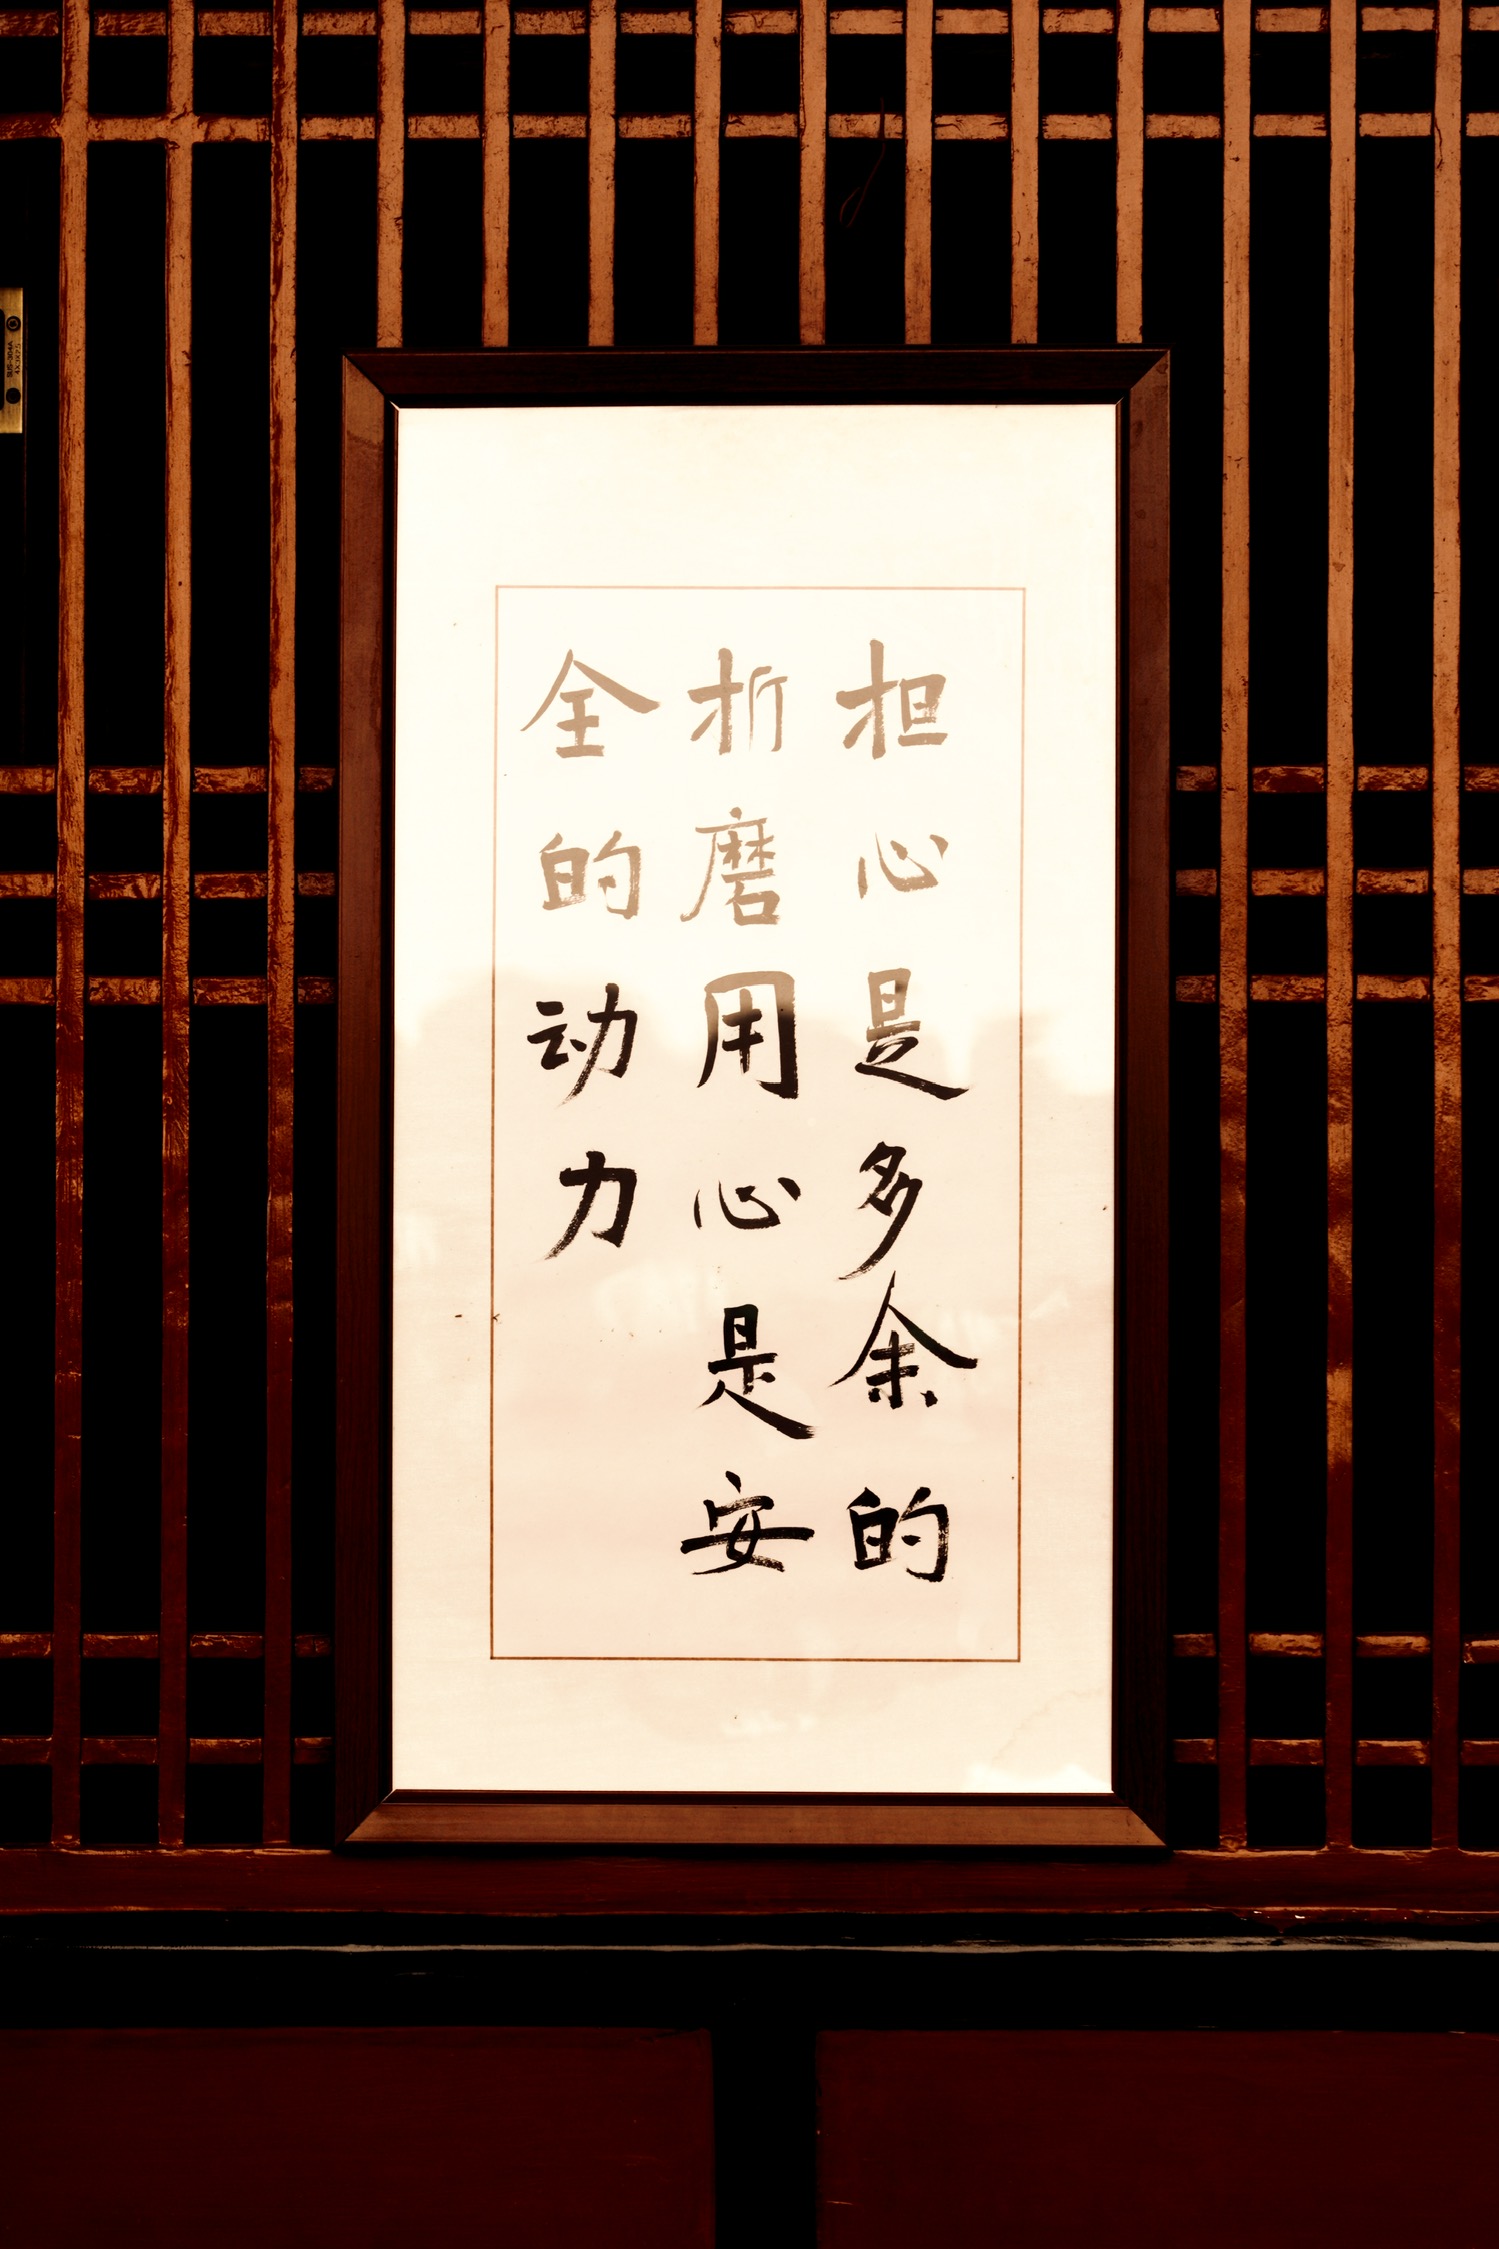 担心是多余的
折磨用心是安
全的动力
SUS-304A